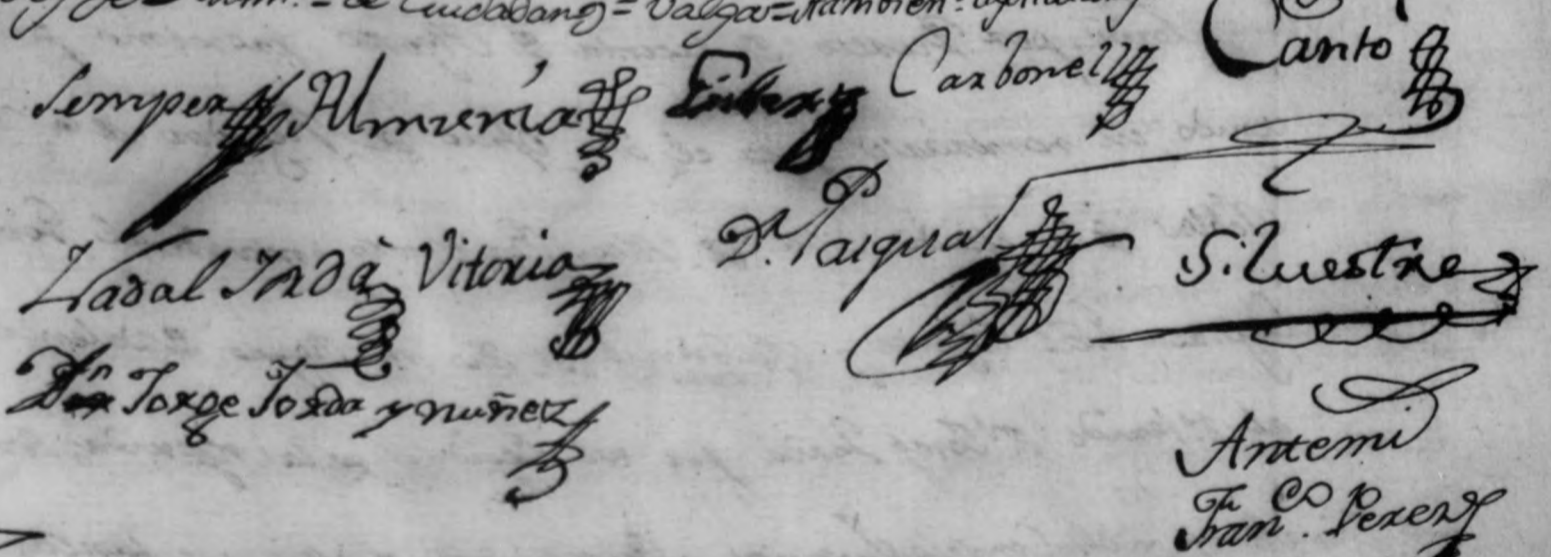 de Ciudadanos = Valga = tambien
Semper Almunia Gisbert Carbonell Canto
Nadal Jordà Vitoria Dr. Pasqual Silvestre
Dn Jorge Jorda y nuñez
Antemi
Franco. Perez